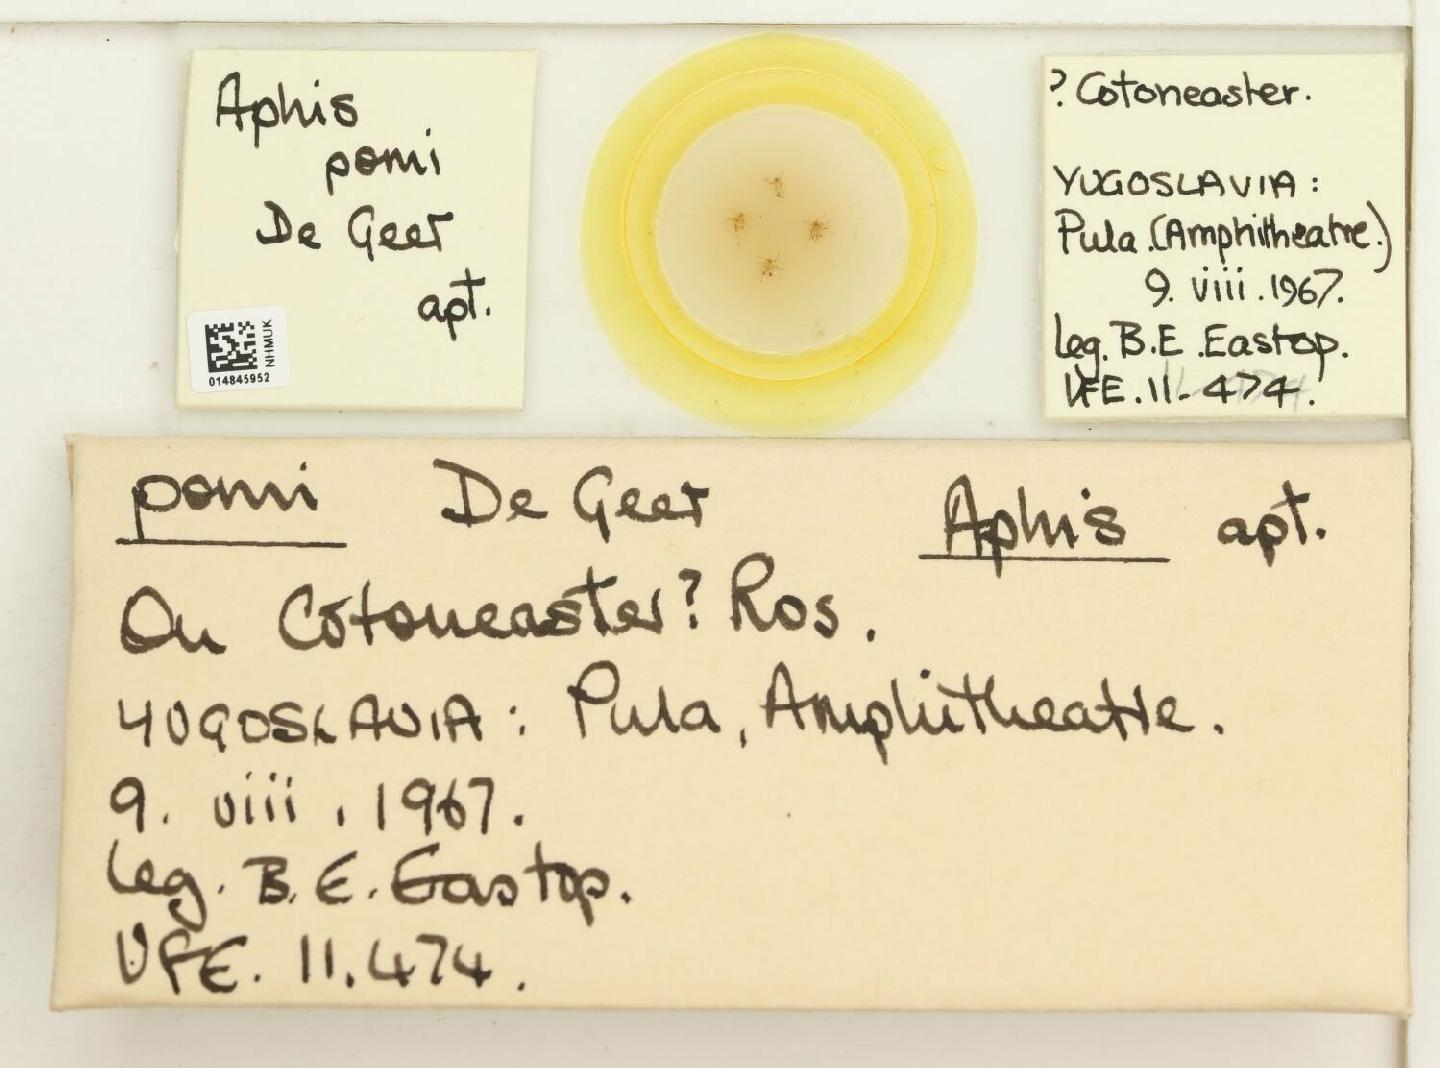 Aphis
pomi
De Geer
apt.
NHMUK
014845952
? Cotoneaster.
YUGOSLAVIA:
Pula.(Amphitheatre.)
9. viii.1967.
leg. B.E.Eastop.
VFE.11-474.
pomi De Geer Aphis apt.
On Cotoneaster? Ros.
YUGOSLAVIA: Pula, Amphitheatre.
9. viii.1967.
leg. B.E.Eastop.
VFE.11.474.